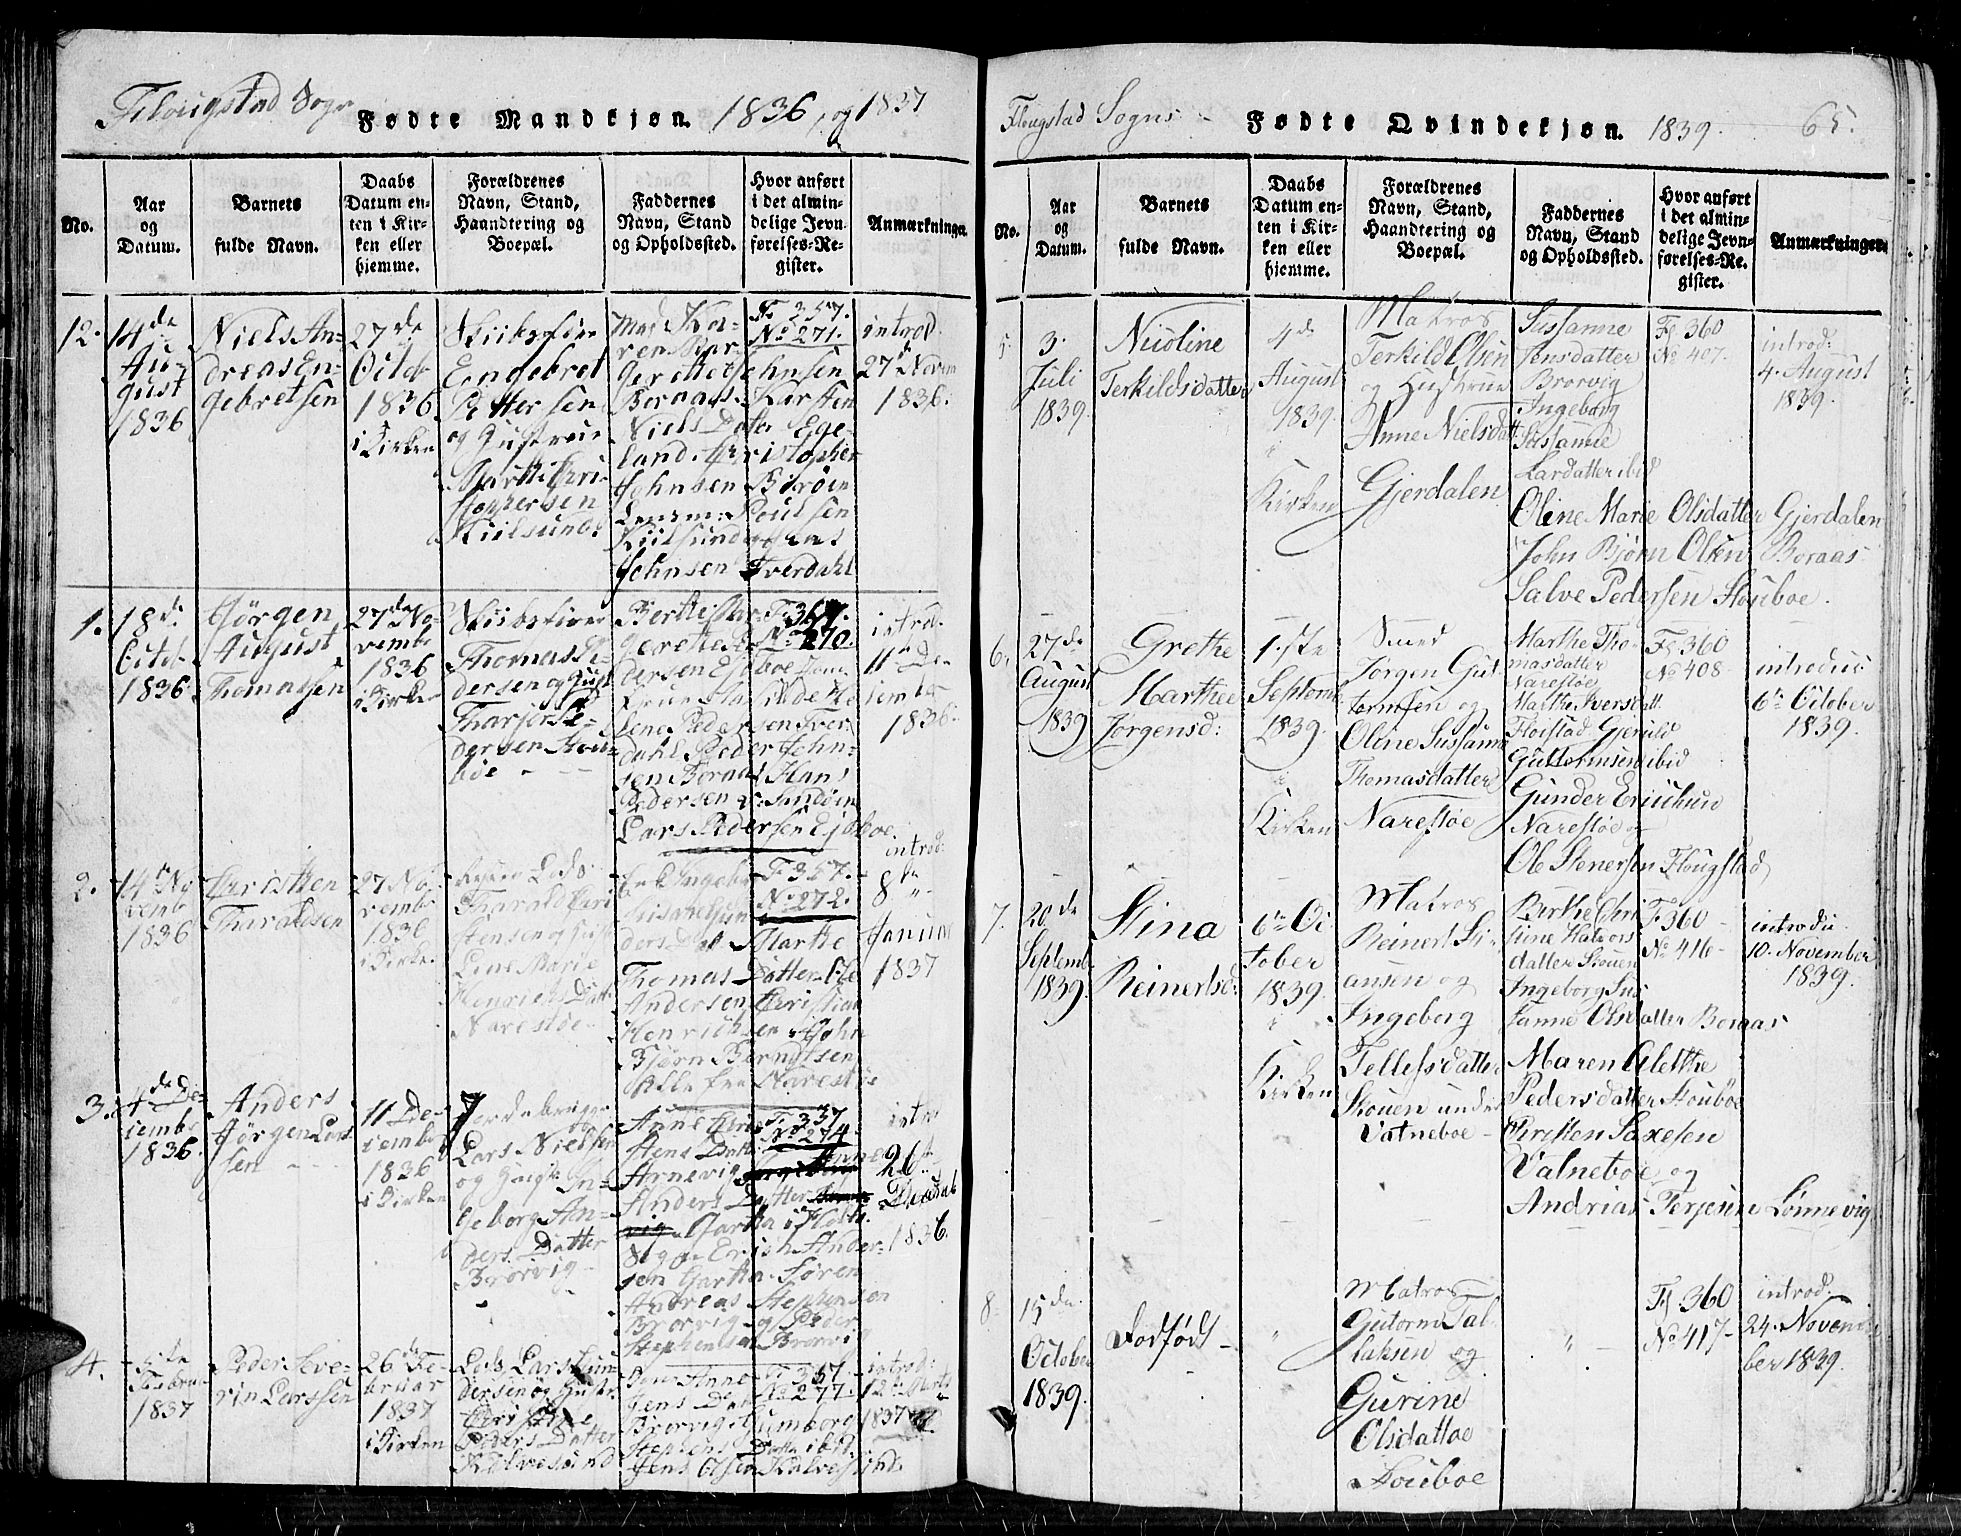 Flougstad Sogn
Fødte Mandkjøn. 1836, og 1837
No.
Aar
og
Datum.
Barnets
fulde Navn.
Daabs
Datum en-
ten i Kir-
ken eller
hjemme.
Forældrenes
Navn, Stand,
Haandtering og
Boepæl.
Faddernes
Navn, Stand
og Opholdssted.
Hvor anført
i det almin-
delige Jevn-
førelses-Re-
gister.
Anmærkninger
12.
14de
Au-
gust
1836
Niels An-
dreas En-
gebretsen
27de
Octob
1836
i Kirken
Engebret
Pettersen
og Hustrue
Kiilsund
Mad. Ka-
ren Mar-
grethe Johnsen
Boraas. Karsten
Niels Dater Ege-
land. Christopher
Johnsen Borøen
Lensm: Poulsen
Kiilsund og Lars
Johnsen Tverdahl
Fr 357.
No 271.
introd.
27de Novem
1836.
1.
18de
Octob
1836
Jørgen
August
Thomassen
27de No-
vembr
1836
i Kirken
Thomas Pe-
dersen og Hust
Pe-
dersen Stou-
boe
Berthe Mar-
grethe Pe-
dersen Ejeboe
lene Pedersen Tver-
dahl Peder John-
sen Boraas Hans
Pedersen Sandøen
Lars Pedersen Ejeboe
No 270.
introd.
11te De-
cember
1836.
2.
14de No
vembr
1836
Christen
Tharaldsen
27 No-
vembr
1836
i Kirke.
Lods
Tharald Chri
stensen og Hust
Lene Marie
Henrichs Datt
Narestøe
Marthe
Thomas Datter Ole
Andersen Christian
Henrichsen John
Bjørn Berntsen
Alle fra Narestøe
F. 357.
No 272.
introd:
8de
Januar
1837
3.
4de De-
cembr
1836.
Anders
Jørgen Lars
sen
11 De-
cember
1836
i Kirken
Jordebruger
Lars Nielsen
og Hust. In-
geborg An-
ders Datter
Brorvig
Anne Chri
stens Datt.
Arnevig Anne
Anders Datter
Gartha i Holts
Sogn Erich Ander-
sen Gartha. Søren
Andreas Stephensen
Brorvig og Peder
Stephensen Brorvig
F. 357
No 274.
introd
26de
Decemb
1836.
4.
5de
Februar
1837
Peder Seve-
rin Larssen
26de Fe-
bruar
1837
i Kirken
Lods Lars Gun-
dersen og Hustr.
Christine
Peders Datter
Kalvesund
Anne
Jens Datter
Brorvig Gumborg
Stephens Datter ibid.
Jens Olsen Kalvesund
F. 357.
No 277.
introd:
12te Marts
1837
Flougstad Sogns
Fødte Qvindekjøn. 1839. 65.
No.
Aar
og
Datum.
Barnets
fulde Navn.
Daabs
Datum en-
ten i Kir-
ken eller
hjemme.
Forældrenes
Navn, Stand,
Haandtering og
Boepæl.
Faddernes
Navn, Stand
og Opholdssted.
Hvor anført
i det almin-
delige Jevn-
førelses-Re-
gister.
Anmærkninger.
5.
3.
Juli
1839.
Nicoline
Terkildsdatter
4de
August
1839.
i
Kirken
Matros
Terkild Olsen
og Hustrue
Anne Nielsdatt.
Gjerdalen
Sussanne
Jensdatter
Brorvig
Ingeborg
Sussanne
Larsdatter ibid
Oline Marie Olsdatter Gjerdalen
John Bjørn Olsen Boraas
Salve Pedersen Stouboe.
Fl 360
No 407.
introd:
4. August
1839.
6.
27de
August
1839
Grethe
Marthee
Jørgensd:
1.ste
Septemb
1839.
i
Kirken
Smed
Jørgen Gut-
tormsen og
Oline Sussanne
Thomasdatter
Narestøe
Marthe Tho-
masdatter
Narestøe
Marthe Iversdatt.
Floistad Gjeruld
Guttormsen ibid
Gunder Erichsen
Narestøe og
Ole Stenersen Flougstad
Fl 360
No 408
introduc:
6te October
1839.
7.
20de
Septemb.
1839.
Stina
Reinertsd:
6te Oc
tober
1839.
i
Kirken
Matros
Reinert Ki-
ansen og
Ingeborg
Tellefsdatter
Skouen under
Vatneboe
Berthe Chri
stine Halvors
datter Skouen
Ingeborg Sus
sanne Olsdatter Boraas
Maren Alethe
Pedersdatter Stouboe
Christen Saxesen
Vatneboe og
Andrias Terjesen Lønnevig
F. 360
No 416
introdu:
10. November
1839.
8.
15de
October
1839.
Dødfødt
"
Matros
Gutorm Tal-
laksen og
Gurine
Olsdatter
Stouboe
"
Fl. 360
No 417
introd:
24. Novem
ber 1839.